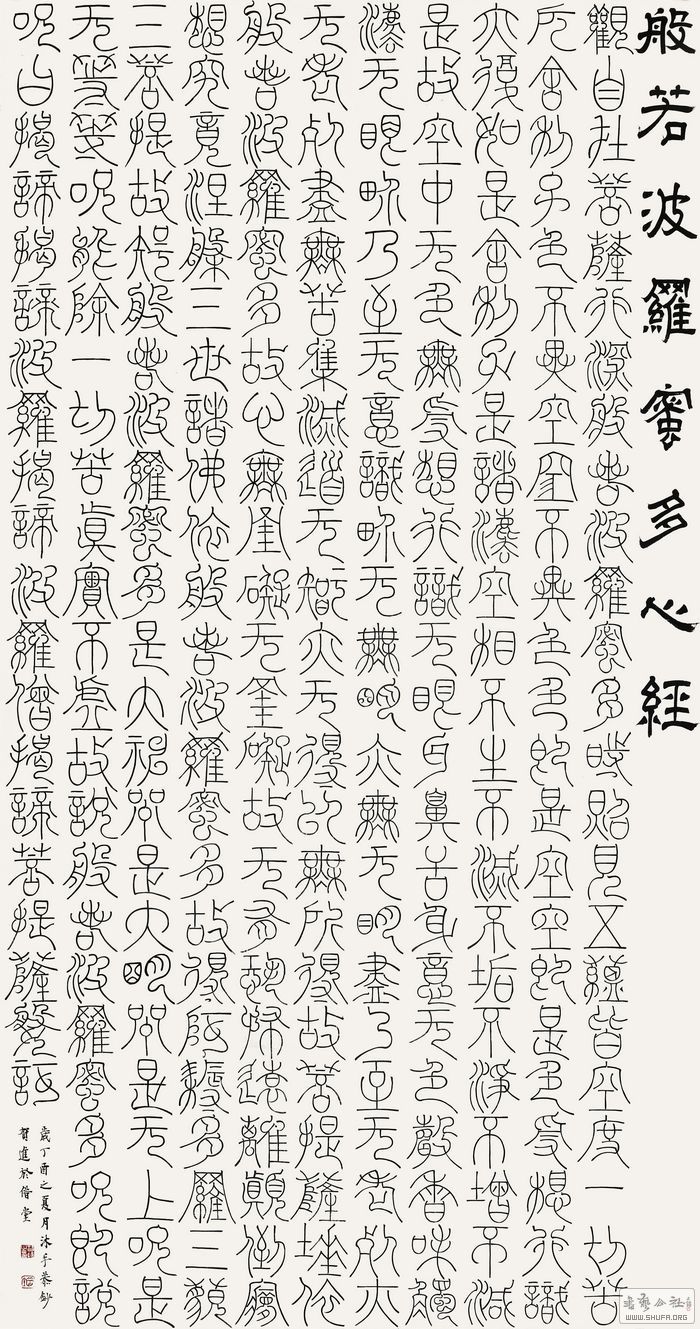 般若波羅蜜多心經
觀自在菩薩行深般若波羅蜜多時照見五蘊皆空度一切苦
厄舍利子色不異空空不異色色即是空空即是色受想行識
亦復如是舍利子是諸法空相不生不滅不垢不淨不增不減
是故空中无色無受想行識无眼耳鼻舌身意无色聲香味觸
法无眼界乃至无意識界无無明亦無无明盡乃至无老死亦
无老死盡無苦集滅道无智亦无得以無所得故菩提薩埵依
般若波羅蜜多故心無罣礙无罣礙故无有恐怖遠離顛倒夢
想究竟涅槃三世諸佛依般若波羅蜜多故得阿耨多羅三藐
三菩提故知般若波羅蜜多是大神咒是大明咒是无上咒是
无等等咒能除一切苦真實不虛故說般若波羅蜜多咒即說
咒曰揭諦揭諦波羅揭諦波羅僧揭諦菩提薩婆訶
歲丁酉之夏月沐手恭鈔
進於堂
书艺公社
WWW.SHUFA.ORG